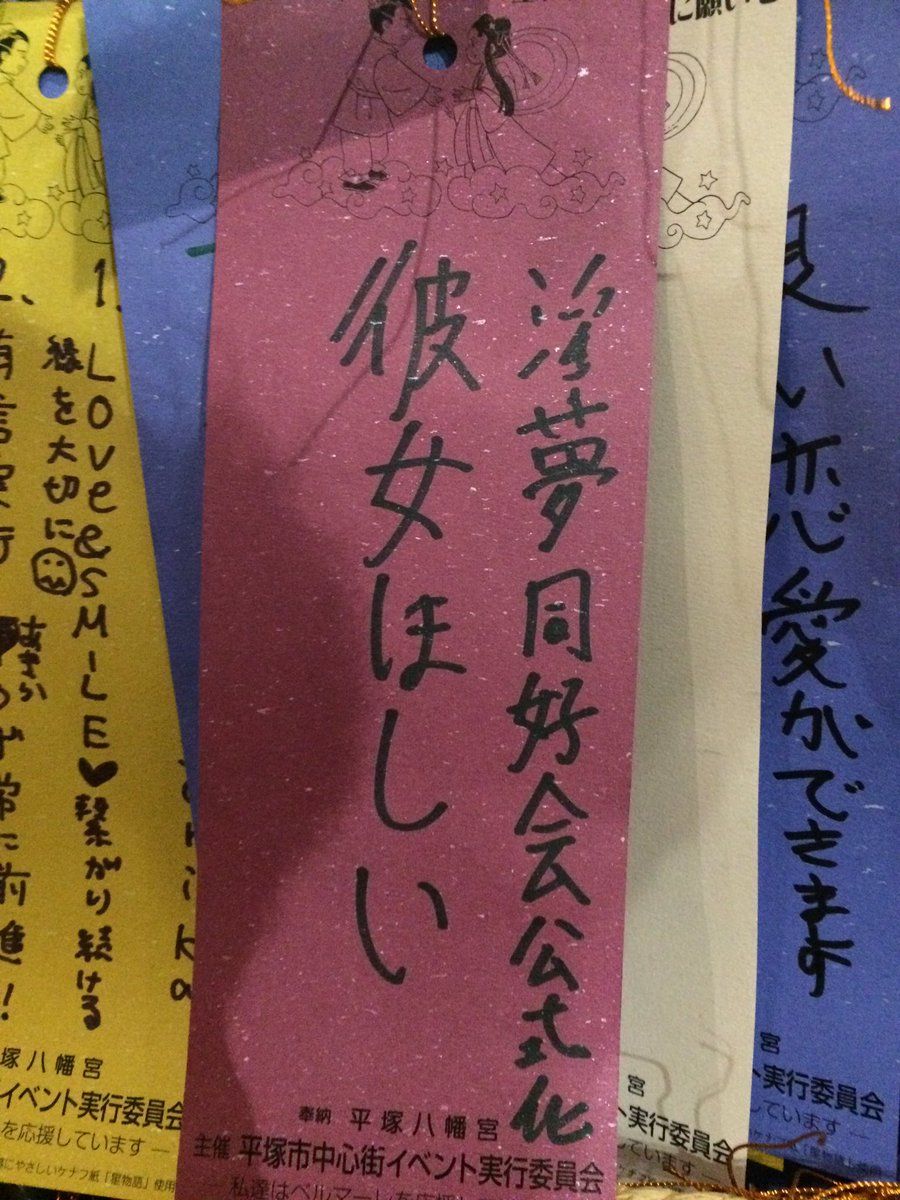 に願いを
淫夢同好会公式化
彼女ほしい
奉納 平塚八幡宮
主催 平塚市中心街イベント実行委員会
私達はベルマーレを応援し
1. Love&SMiLE♥繋がり続ける
縁を大切に
2. 有言実行
常に前進!
塚八幡宮
イベント実行委員会
を応援しています
にやさしいケナフ紙「星物語」使用
宮
ント実行委員会
ています
い恋愛ができます
宮
ト実行委員会
しています